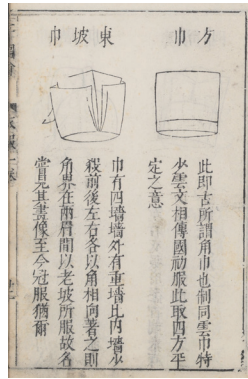 方巾
此即古所謂角巾也制同雲巾特
少雲文相傳國初服此取四方平
定之意
東坡巾
巾有四墻墻外有重墻比內墻少
殺前後左右各以角相向著之則
角界在兩眉間以老坡所服故名
嘗見其畫像至今冠服猶爾